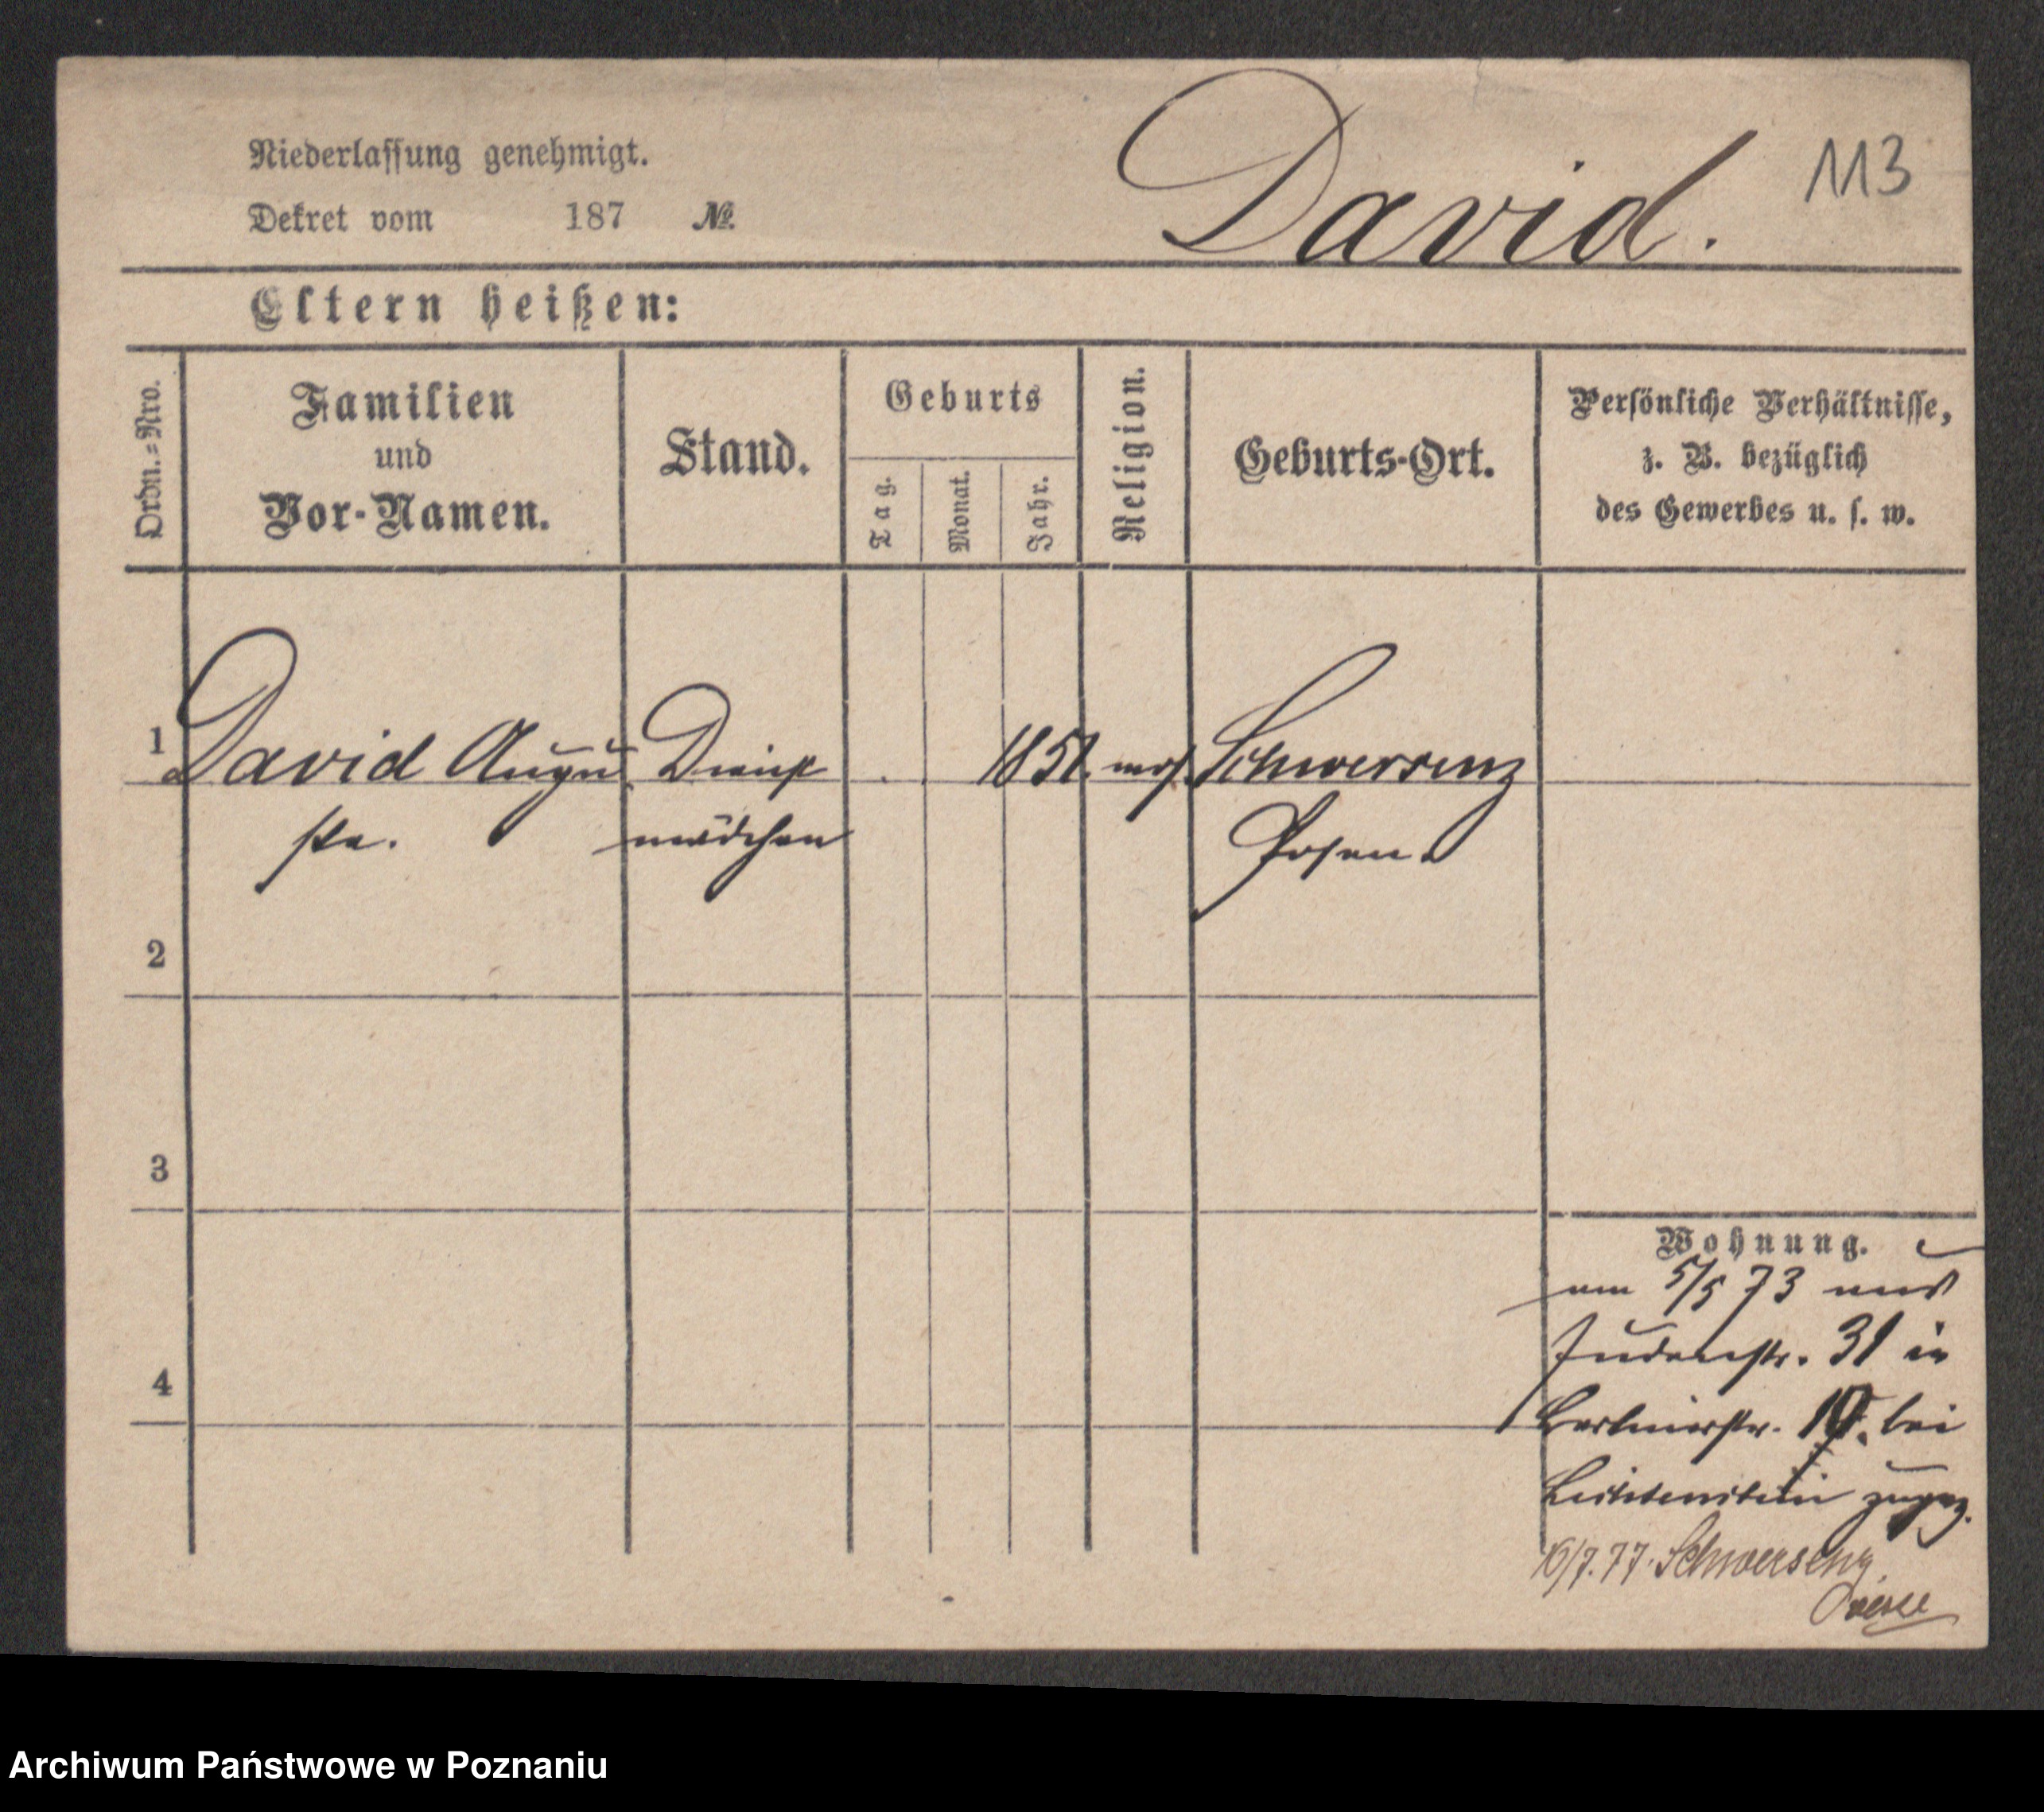 Niederlassung genehmigt.
Dekret vom 187 №
David.
113
Eltern heißen:
Ordn.=Nro.
Familien
und
Vor-Namen.
Stand.
Geburts
Tag.
Monat.
Jahr.
Religion.
Geburts-Ort.
Persönliche Verhältnisse,
z. B. bezüglich
des Gewerbes u. s. w.
1 David Augu Dienst 1851. mos. Schwersenz
ste. mädchen Posen
2
3
4
Wohnung.
am 5/5 73 aus
Judenstr. 31 in
bei
Lichtenstein zugez.
16/7.77. Schwersenz
Archiwum Państwowe w Poznaniu